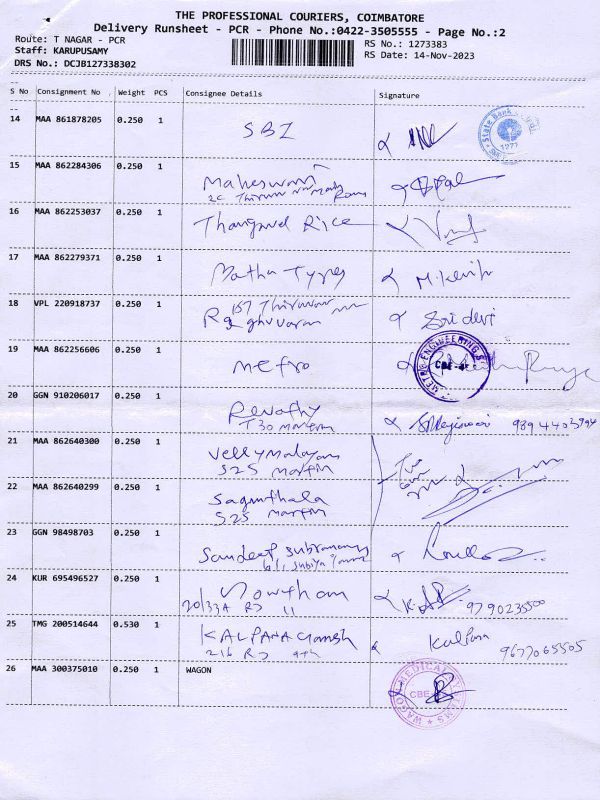 THE PROFESSIONAL COURIERS, COIMBATORE
Delivery Runsheet - PCR - Phone No.:0422-3505555 - Page No.:2
Route: T NAGAR - PCR
RS No.: 1273383
Staff: KARUPUSAMY
RS Date: 14-Nov-2023
DRS No.: DCJB127338302
S No Consignment No Weight PCS Consignee Details Signature
14 MAA 861878205 0.250 1 SBI
State Bank
15 MAA 862284306 0.250 1 Maheswari
16 MAA 862253037 0.250 1 Thangavel Rice
17 MAA 862279371 0.250 1 Matha Types
18 VPL 220918737 0.250 1 157
Raghuvaran Sri devi
19 MAA 862256606 0.250 1 metro
METRO ENGINEERING
CBE
20 GGN 910206017 0.250 1 Revathy
T30 martin
21 MAA 862640300 0.250 1 Vellymalayan
S25 martin
22 MAA 862640299 0.250 1 Sagunthala
S25 martin
23 GGN 98498703 0.250 1 Sandeep Subramany
24 KUR 695496527 0.250 1 Gowtham
20/33A RJ 11 9790235500
25 TMG 200514644 0.530 1 KALPANA Ganesh Kalpana
216 RJ 9th 9677065505
26 MAA 300375010 0.250 1 WAGON
WAGON MEDICAL SYSTEMS
CBE